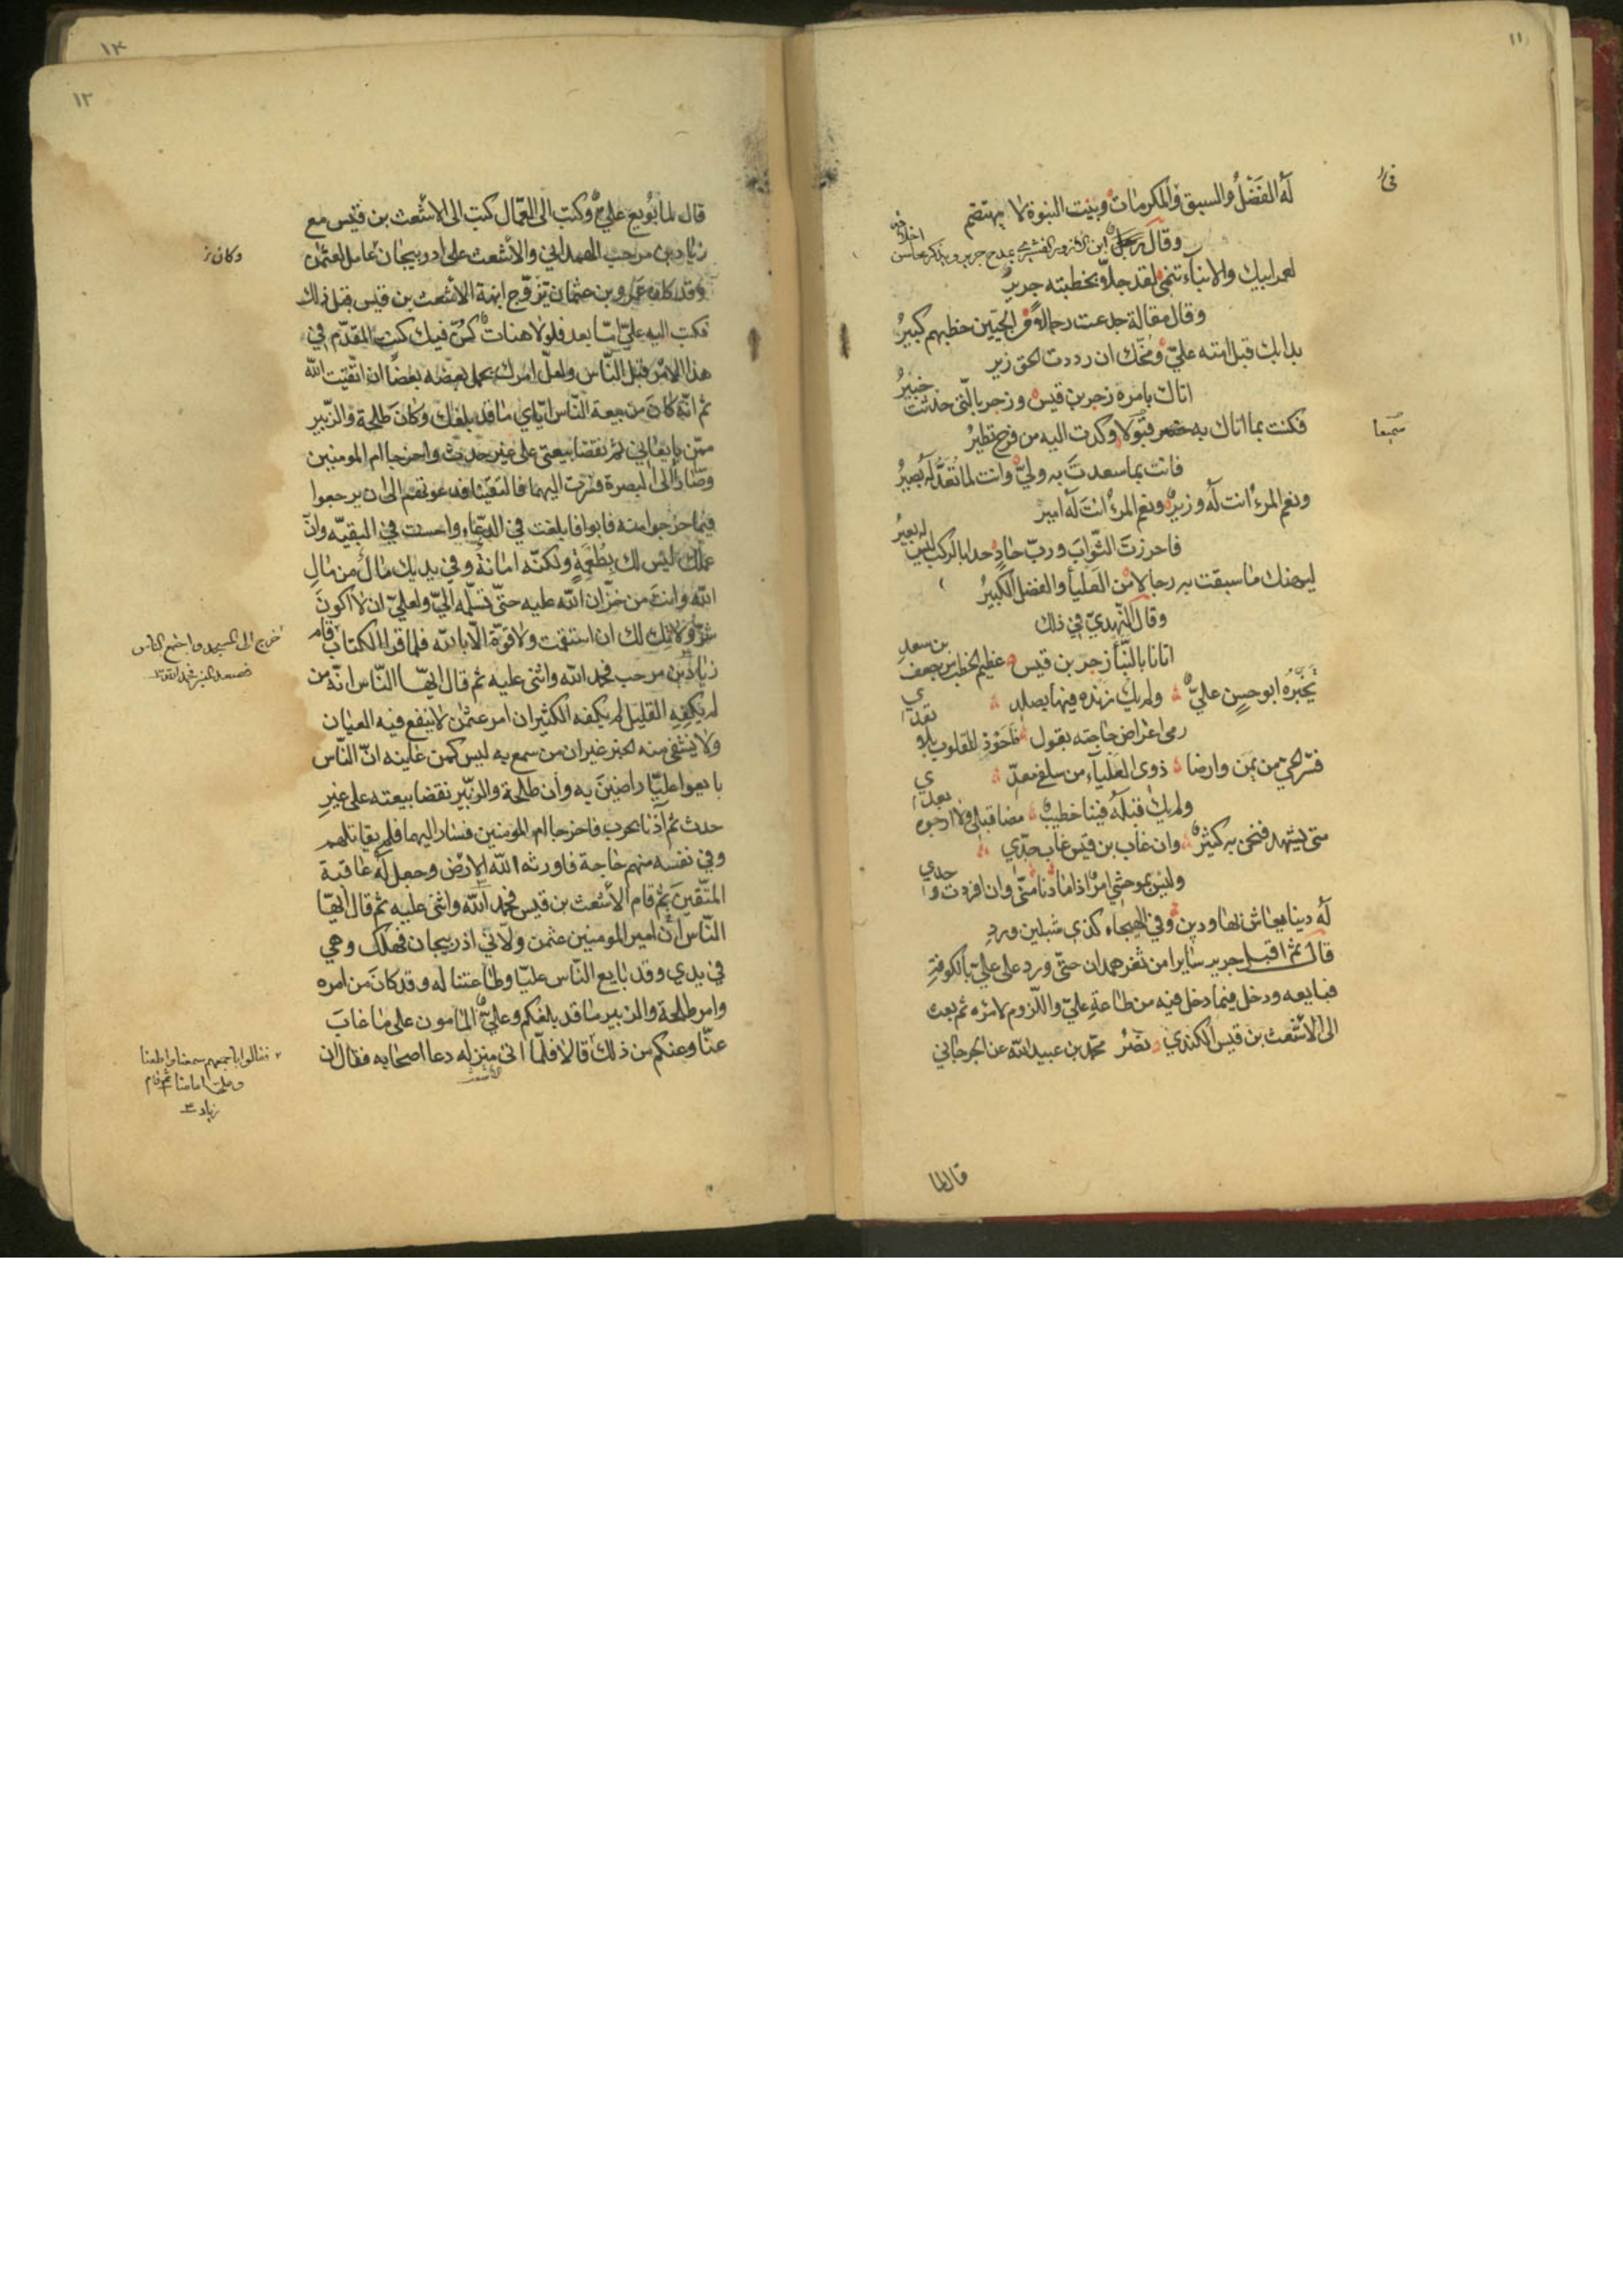 ١١
له الفَضْلُ والسبق والمكرمات وبيت النبوة لا يهتضم
وقال رجل ابن الازور القشيري يمدح جرير ويذكر محاسن اخلاقه
لعمر ابيك والانباء تنمي لقد جلّا بخطبته جريرُ
وقال مقالة جدعت رجالا من الحيّين خطبهم كبيرُ
بدا بك قبل امته عليّ ومخّك ان رددت الحق زير
اتاك بامره زجر بن قيس وزجر بالّتي حدثت خبيرُ
فكنت بما اتاك به قبولا وكدت اليه من فرح تطيرُ
سميعا
فانت بما سعدت به وليّ وانت لما تُعَدُّ له بصيرُ
ونعم المرء انت له وزيرٌ ونعم المرء انت له امير
فاحرزتَ الثّواب وربّ حادٍ حدا بالركب ليس له بعيرُ
ليهنك ما سبقت به رجالا من العلياء والفضل الكبيرُ
وقال النّهديّ في ذلك
اتانا بالنّبأ زجر بن قيس عظيم الخطب من جعف بن سعدِ
تخيّره ابو حسنٍ عليّ ولم يك زنده فيها بصلد
رمى اغراض حاجته بقول اخوذ للقلوب بلا تعدي
فسّر الحيّ من يمن وارضا ذوي العلياء من سلفي معدّ
ولم يك قبله فينا خطيب مضا قبلي ولا ارجوه بعدي
متى يشهد فنحن به كثير وان غاب بن قيس غاب حدّي
وليس بموحشي امر اذا ما دنا منّي وان افردت وحدي
له دنيا يعاش بها ودين وفي الهيجاء كذي شبلين وردِ
قال ثم اقبل جرير سايرا من ثغر همدان حتّى ورد على عليّ بالكوفةِ
فبايعه ودخل فيما دخل فيه من طاعة عليّ واللّزوم لامره ثم بعث
الى الاشعث بن قيس الكندي نصر محمّد بن عبيد الله عن الجرجاني
قال لما
١٣
١٢
قال لما بُويع عليّ وكتب الى العمّال كتب الى الاشعث بن قيس مع
زياد بن مرحب الهمداني والاشعث على اذربيجان عامل لعثمن
وكان
وقد كان عمرو بن عثمان تزوّج ابنة الاشعث بن قيس قبل ذلك
فكتب اليه عليّ امّا بعد فلولا هنات كنّ فيك كنت المقدّم في
هذا الامر قبل النّاس ولعلّ امرك يحمل بعضه بعضًا ان اتّقيت الله
ثم انّه كان من بيعة النّاس ايّاي ما قد بلغك وكان طلحة والزّبير
ممّن بايعاني ثم نقضا بيعتي على غير حدث واخرجا ام المومنين
وصارا الى البصرة فسرت اليهما فالتقينا فدعوتهم الى ان يرجعوا
فيما خرجوا منه فابوا فابلغت في الدّعاء واحسنت في البقيّه وانّ
عملك ليس لك بطُعمةٍ ولكنّه امانة وفي يديك مال من مالِ
الله وانت من خزّان الله عليه حتّى تسلّمه اليّ ولعليّ ان لا اكون
شرّ ولاتك لك ان استقمت ولا قوّة الّا بالله فلما قرا الكتاب قام
خرج الى المسجد واجتمع الناس
فصعد المنبر فحمد الله
زياد بن مرحب فحمد الله واثنى عليه ثم قال ايّها النّاس انّه من
لم يكفِه القليل لم يكفه الكثير ان امر عثمن لا ينفع فيه العيان
ولا يشفي منه الخبر غير ان من سمع به ليس كمن عاينه انّ النّاس
بايعوا عليّا راضينَ به وان طلحة والزّبير نقضا بيعته على غيرِ
حدث ثم آذنا بحرب فاخرجا ام المومنين فسار اليهما فلم يقاتلهم
وفي نفسه منهم حاجة فاورثه الله الارض وجعل له عاقبة
المتّقينَ ثم قام الاشعث بن قيس فحمد الله واثنى عليه ثم قال ايّها
النّاس ان امير المومنين عثمن ولّاني اذربيجان فهلك وهي
في يدي وقد بايع النّاس عليّا وطاعتنا له وقد كان من امره
وامر طلحة والزبير ما قد بلغكم وعليّ المامون على ما غابَ
عنّا وعنكم من ذلك قالا فلمّا اتى منزله دعا اصحابه فقال ان
الاشعث
فقالوا باجمعهم سمعنا واطعنا
ثم قام
زياد